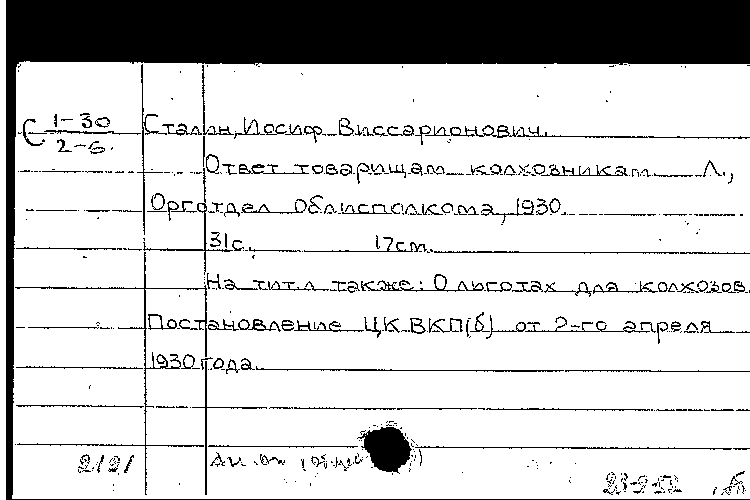 С 1-30
2-6.
Сталин, Иосиф Виссарионович.
Ответ товарищам колхозникам Л.,
Орготдел Облисполкома, 1930.
31с. 17см.
На тит.л также: О льготах для колхозов.
Постановление ЦК ВКП(б) от 2-го апреля
1930 года.
2/21